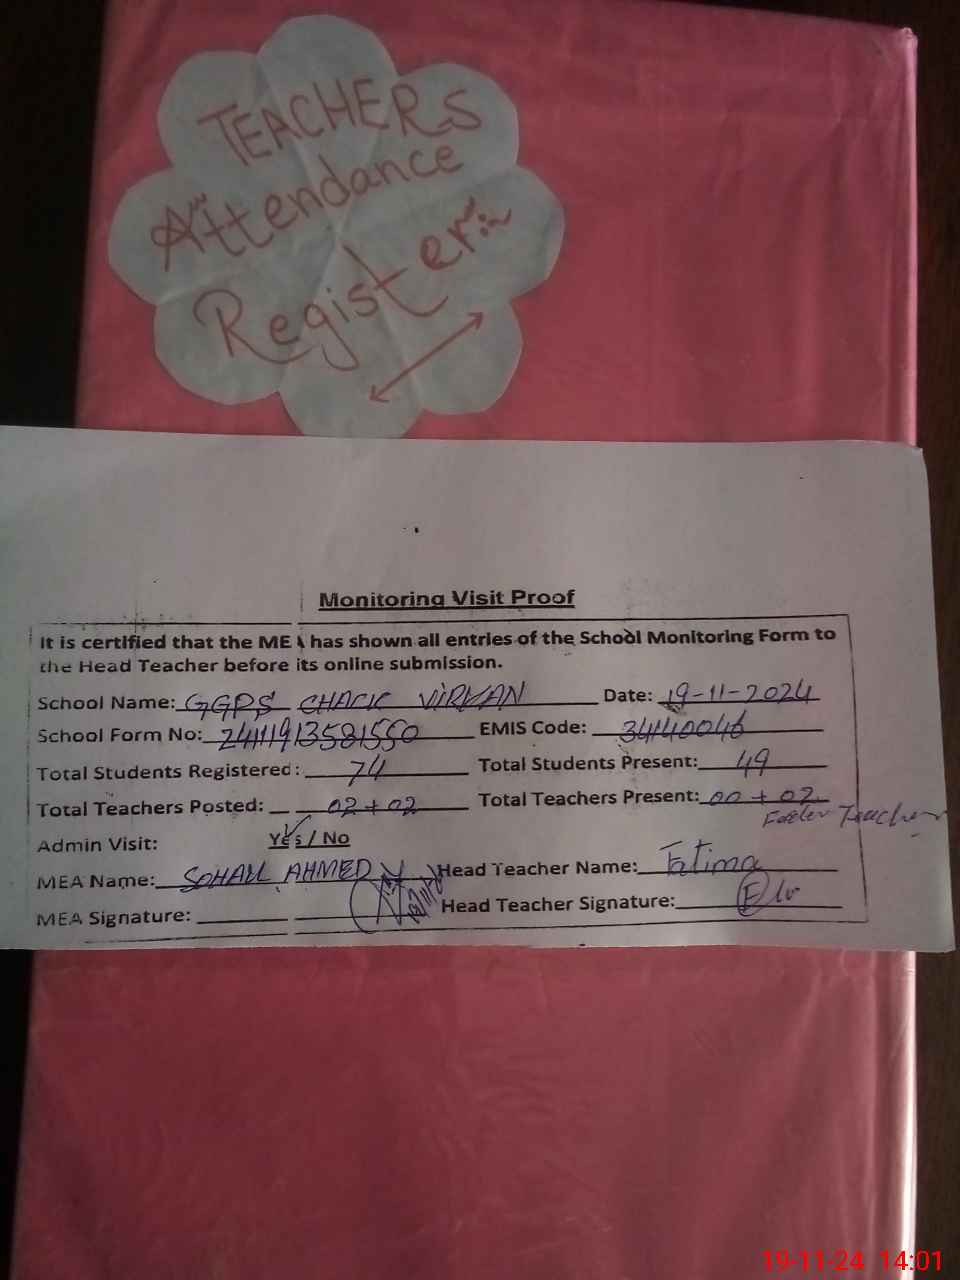 TEACHERS
Attendance
Register:
Monitoring Visit Proof
It is certified that the MEA has shown all entries of the School Monitoring Form to
the Head Teacher before its online submission.
School Name: GGPS CHACK VIRKAN Date: 19-11-2024
School Form No: 2411913581550 EMIS Code: 34140046
Total Students Registered: 74 Total Students Present: 49
Total Teachers Posted: 02 + 02 Total Teachers Present: 00 + 02
Teacher
Admin Visit: Yes / No
MEA Name: SOHAIL AHMED Head Teacher Name: Fatima
MEA Signature: Head Teacher Signature:
19-11-24 14:01